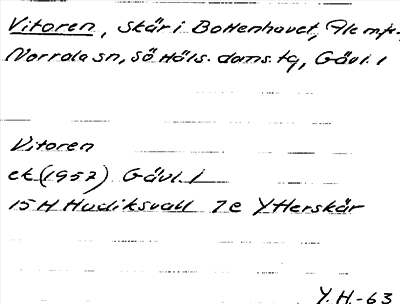 Vitoren, skär i Bottenhavet, Ale mfl.
Norrala sn, Sö Häls. doms. tg, Gävl. l
Vitoren
ek (1957) Gävl. l
15H Hudiksvall 7e Ytterskär
Y.H.-63